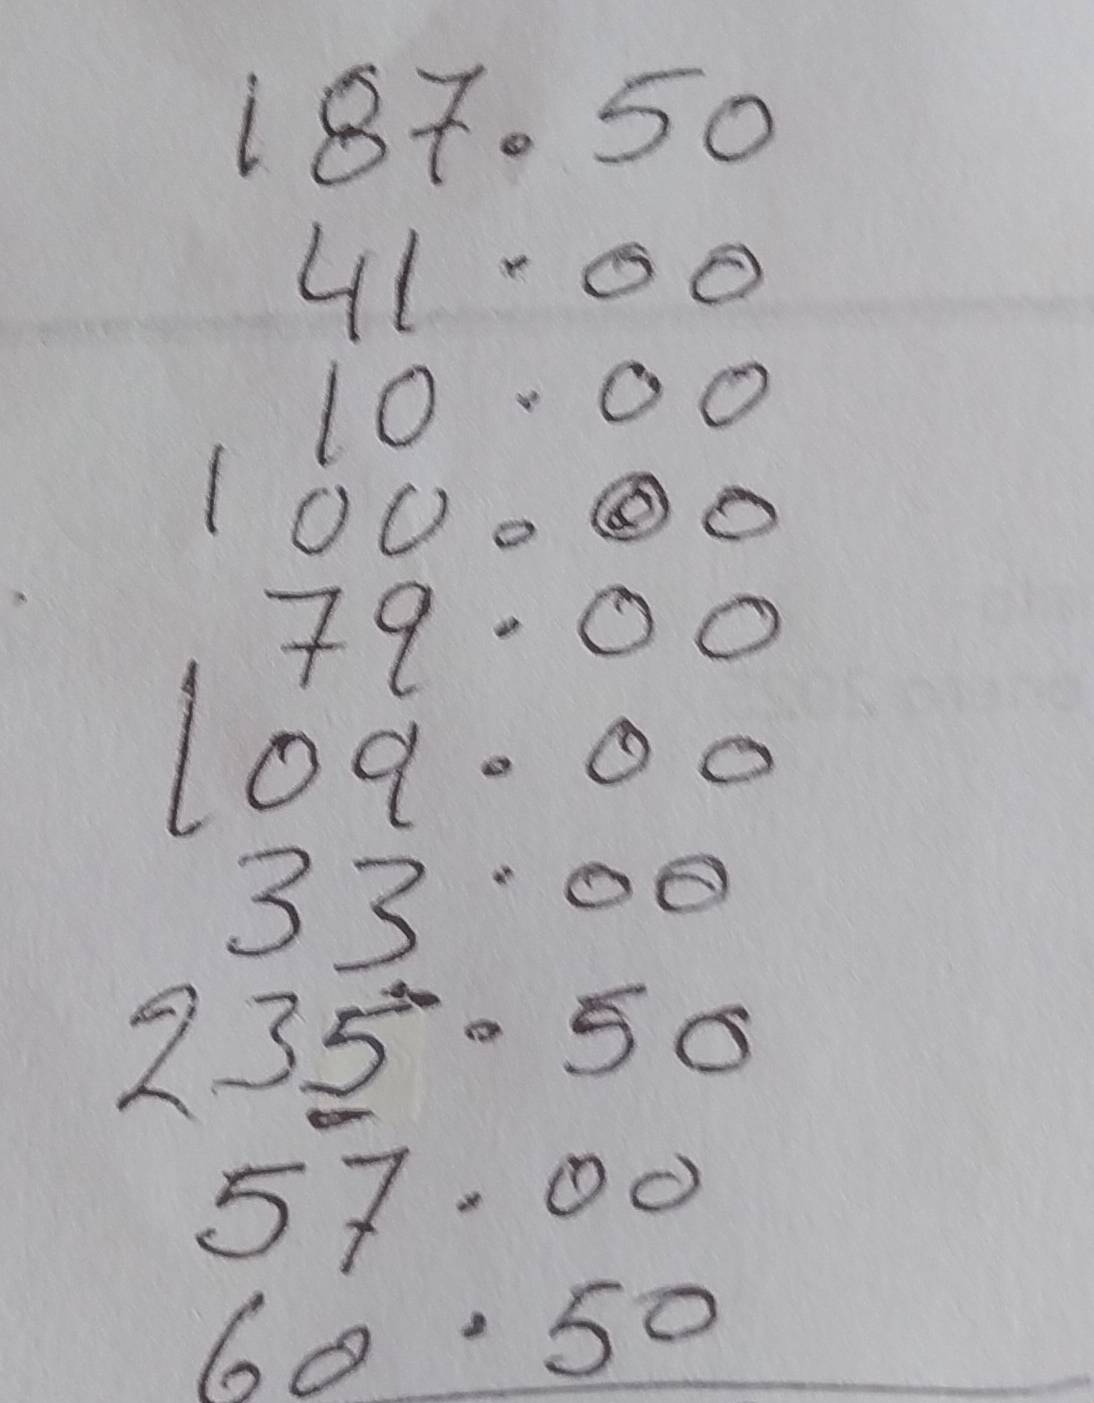 187.50
41.00
10.00
100.00
79.00
109.00
33.00
235.50
57.00
60.50